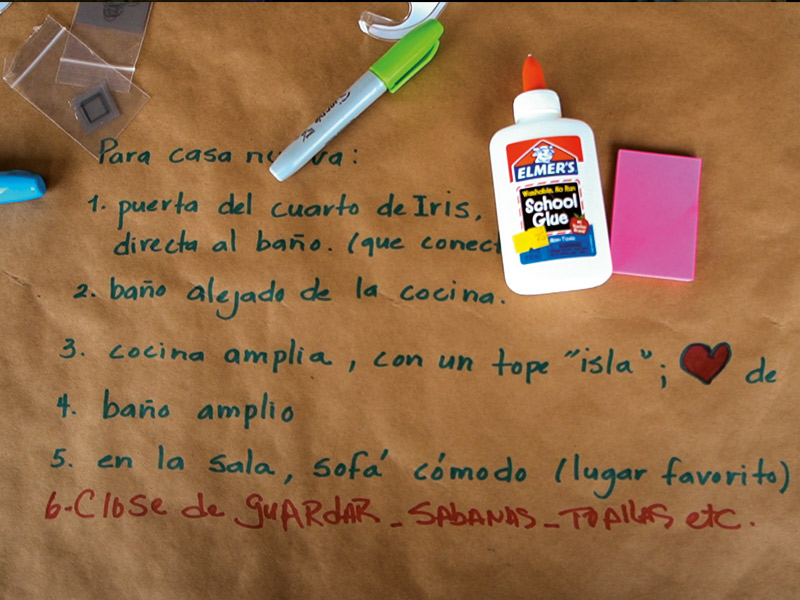 Para casa nueva:
1. puerta del cuarto de Iris,
directa al baño. (que conect
2. baño alejado de la cocina.
3. cocina amplia, con un tope "isla"; de
4. baño amplio
5. en la sala, sofá cómodo (lugar favorito)
6-Close de guARdAR - SABANAS - TOAllAS etc.
ELMER'S
Washable, No Run
School
Glue
Non-Toxic